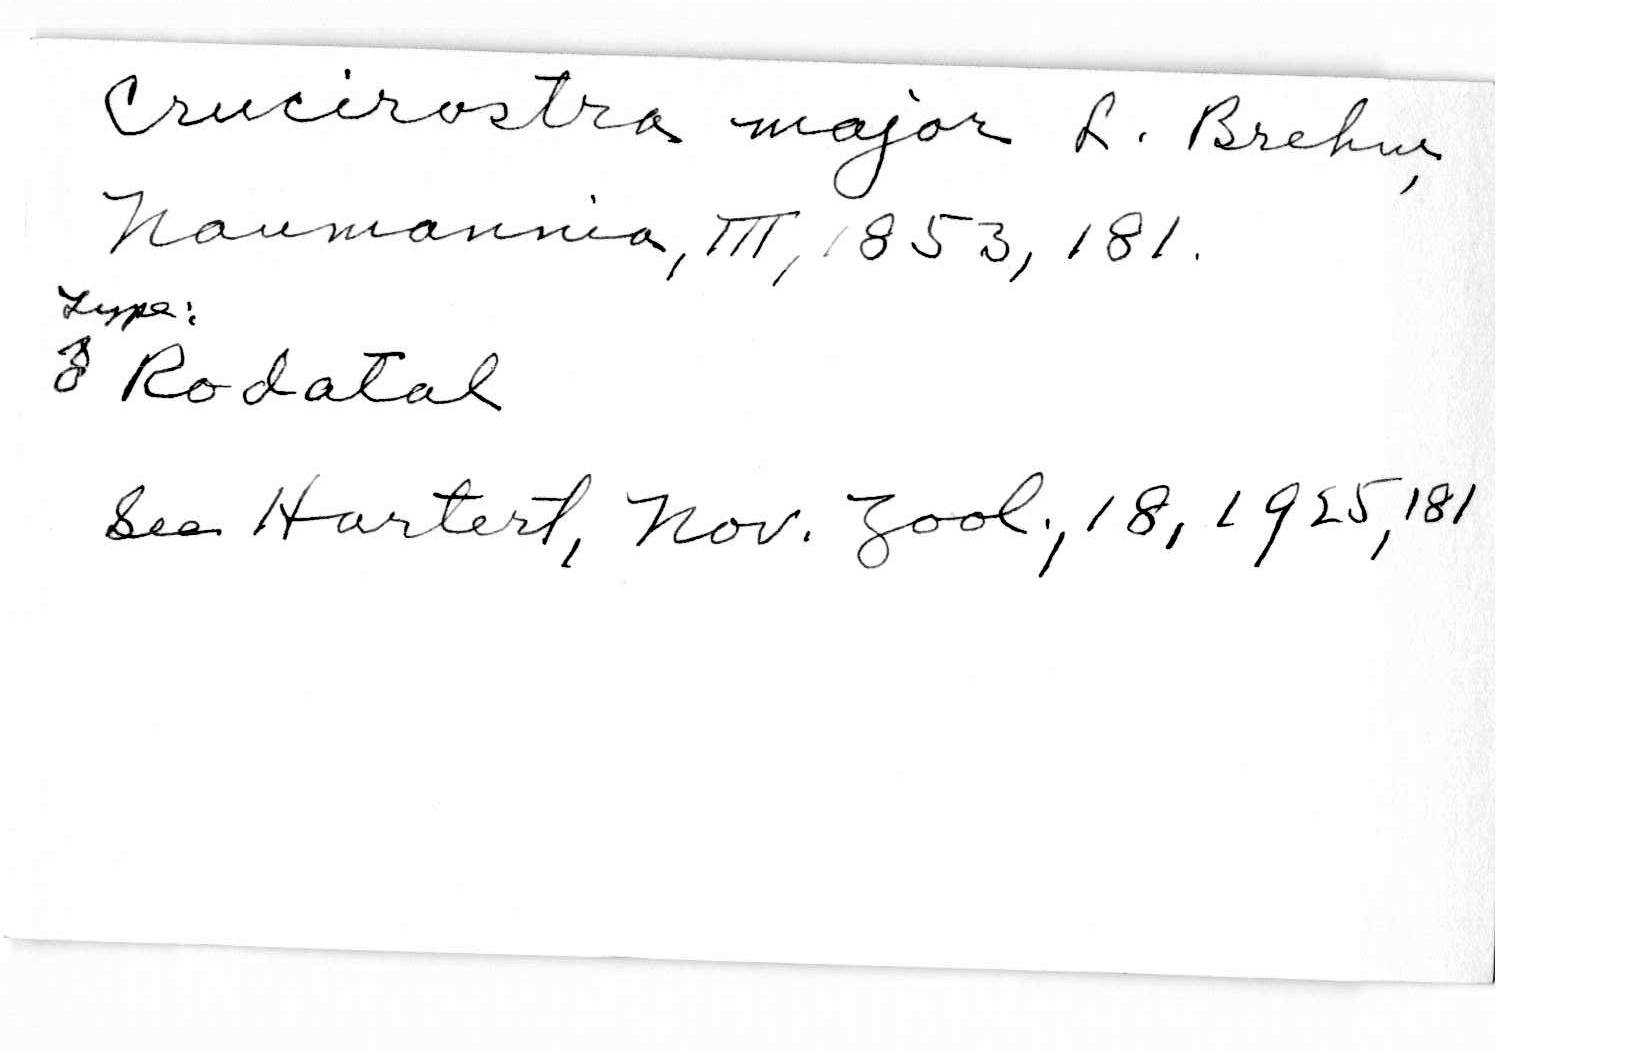 Crucirostra major L. Brehm,
Naumannia, III, 1853, 181.
Type:
♂ Rodatal
See Hartert, Nov. Zool., 18, 1925, 181